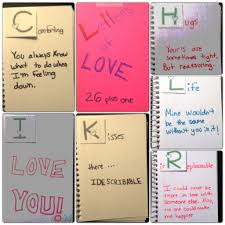 Comforting
You always know
what to do when
I'm feeling
down.
Letters
of
LOVE
26 plus one
Hugs
Your's are
sometimes tight,
But reassuring.
I
LOVE
YOU!
Kisses
there...
INDESCRIBABLE
Life
Mine wouldn't
be the same
without you in it!
Irreplaceable
I could never be
more in love with
someone else. Also,
no one could make
me happier